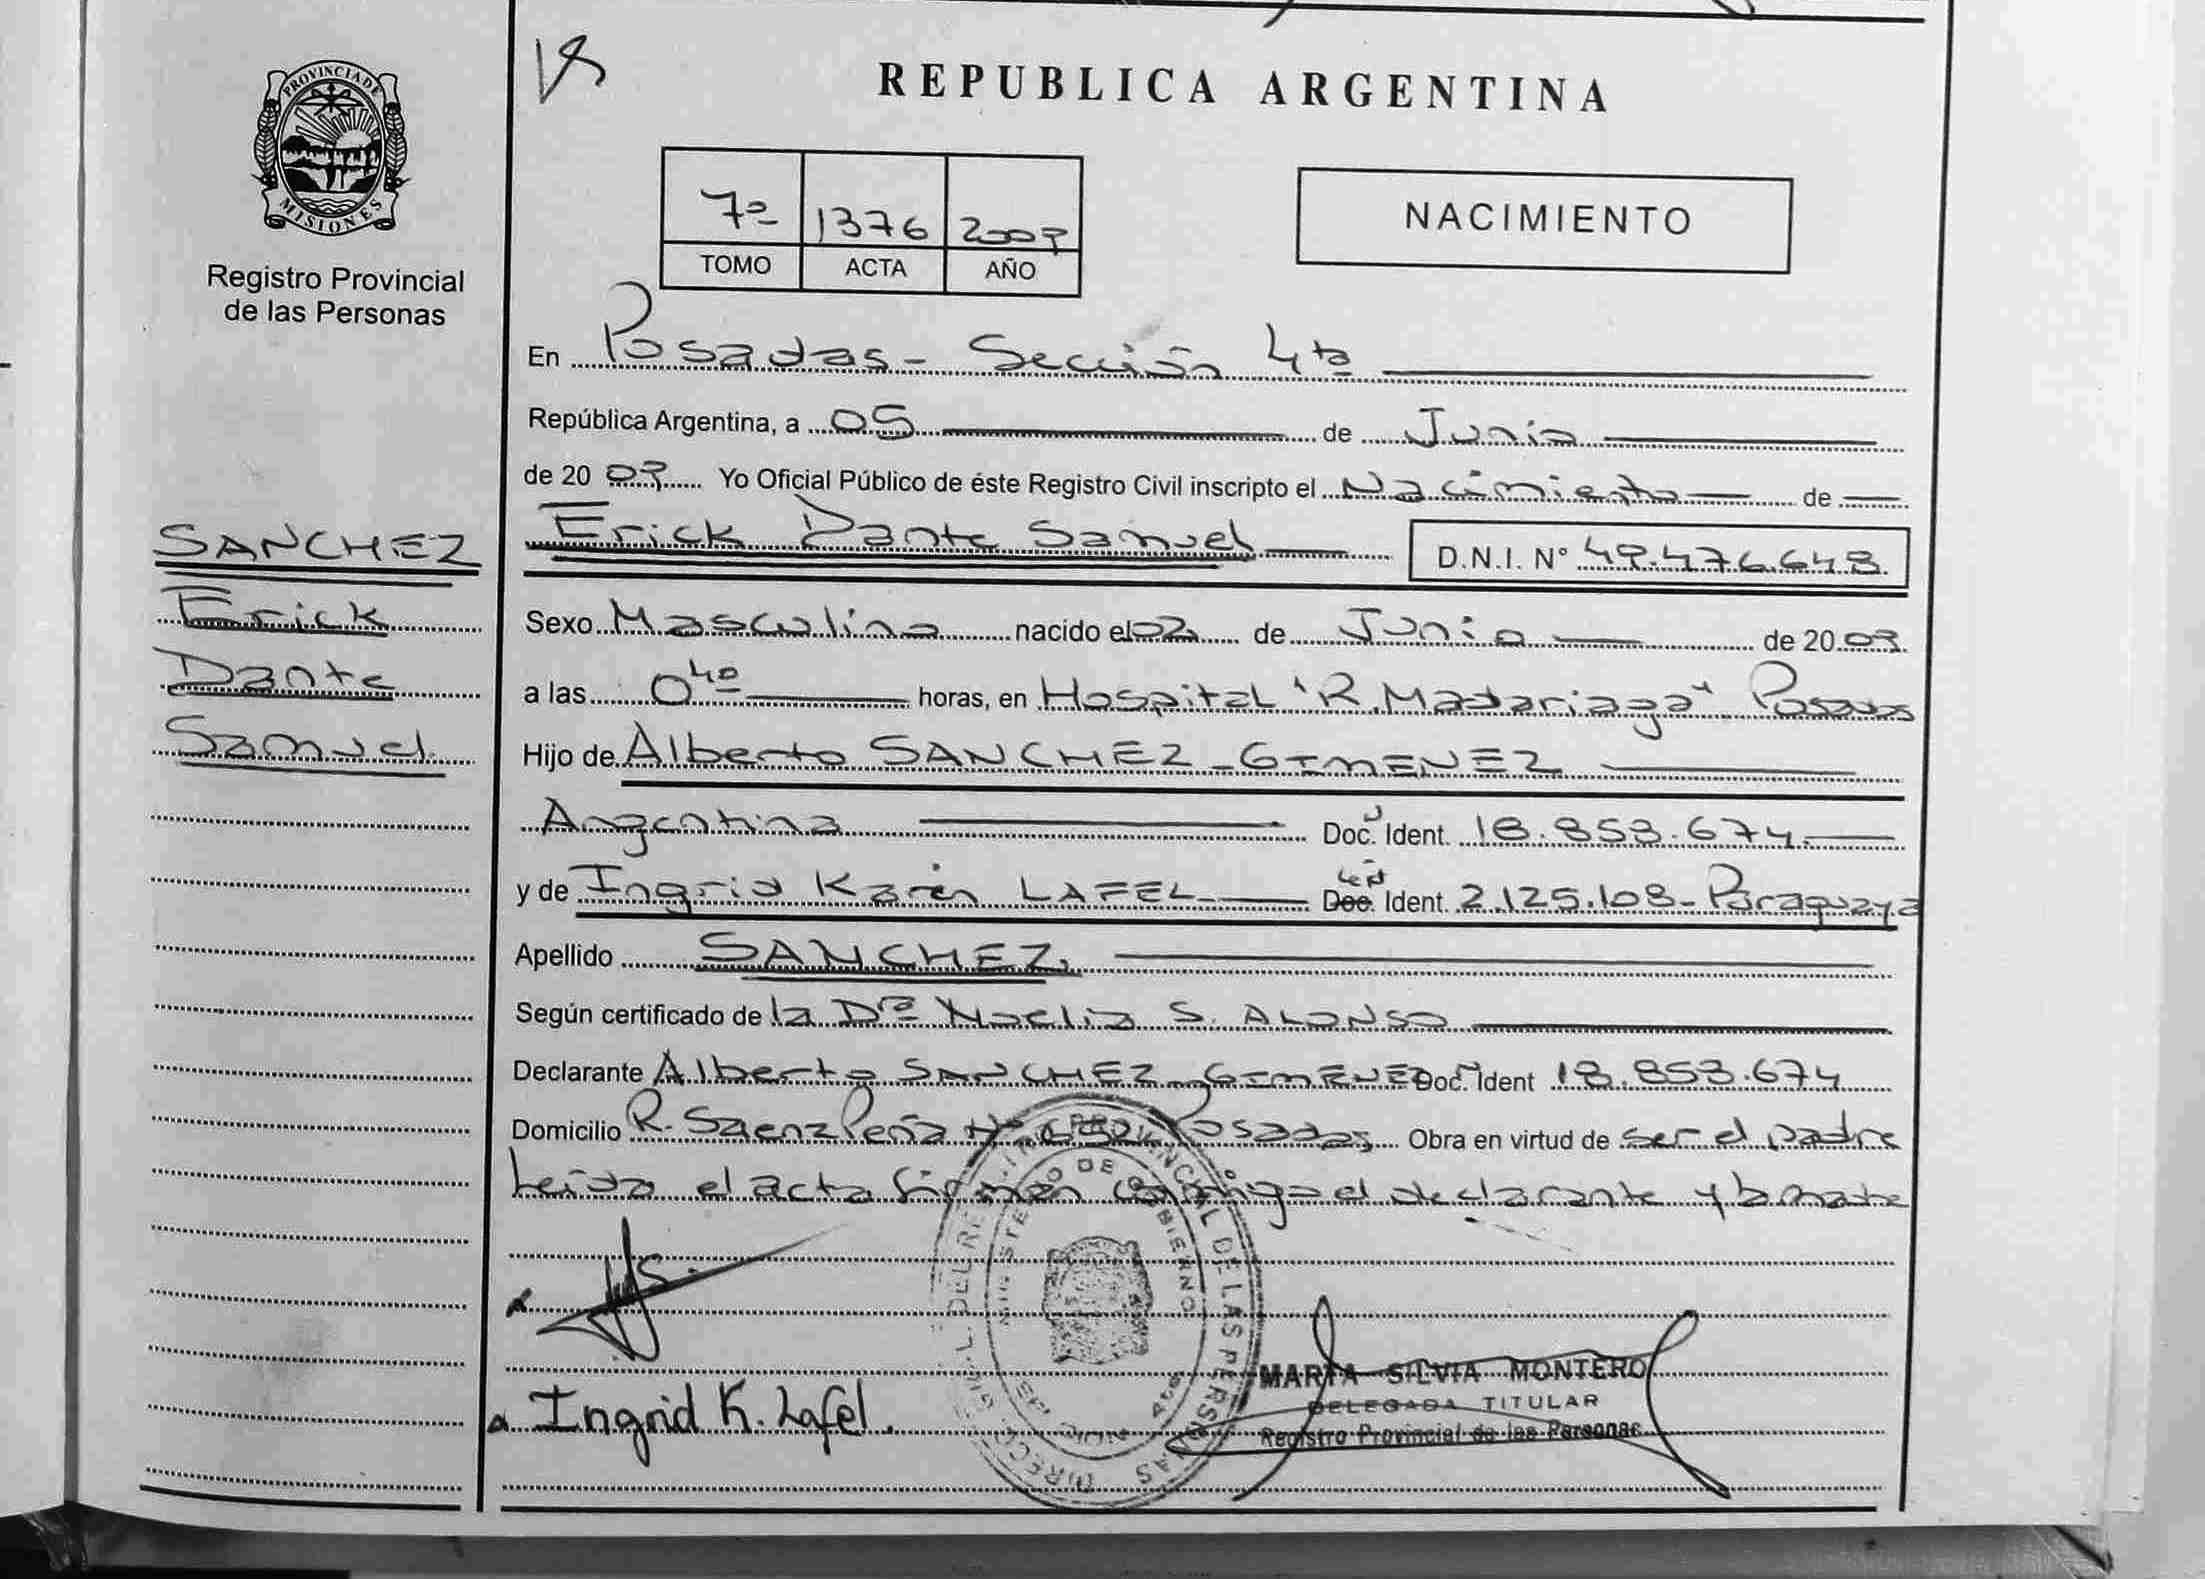 REPUBLICA ARGENTINA
PROVINCIA DE
MISIONES
Registro Provincial
de las Personas
7º 1376 2009
TOMO ACTA AÑO
NACIMIENTO
En Posadas - Sección 4ta
República Argentina, a 05 de Junio
de 2009 Yo Oficial Público de éste Registro Civil inscripto el Nacimiento de
Erick Dante Samuel D.N.I. Nº 49.476.648
SANCHEZ
Erick
Dante
Samuel
Sexo Masculino nacido el 02 de Junio de 2009
a las 0 40 horas, en Hospital "R. Madariaga" Posadas
Hijo de Alberto SANCHEZ - GIMENEZ
Argentina Doc. Ident. 18.853.674
y de Ingrid Karen LAFEL Doc. Ident. 2.125.108 - Paraguaya
Apellido SANCHEZ
Según certificado de la Dra Noelia S. ALONSO
Declarante Alberto SANCHEZ - GIMENEZ Doc. Ident 18.853.674
Domicilio R. Saenz Peña Nº Posadas Obra en virtud de ser el padre
Leida el acta firman conmigo el declarante y la madre
DIRECCION GRAL. DEL REG. PROVINCIAL DE LAS PERSONAS
MINISTERIO DE GOBIERNO
MARTA SILVIA MONTERO
DELEGADA TITULAR
Registro Provincial de las Personas
Ingrid K. Lafel